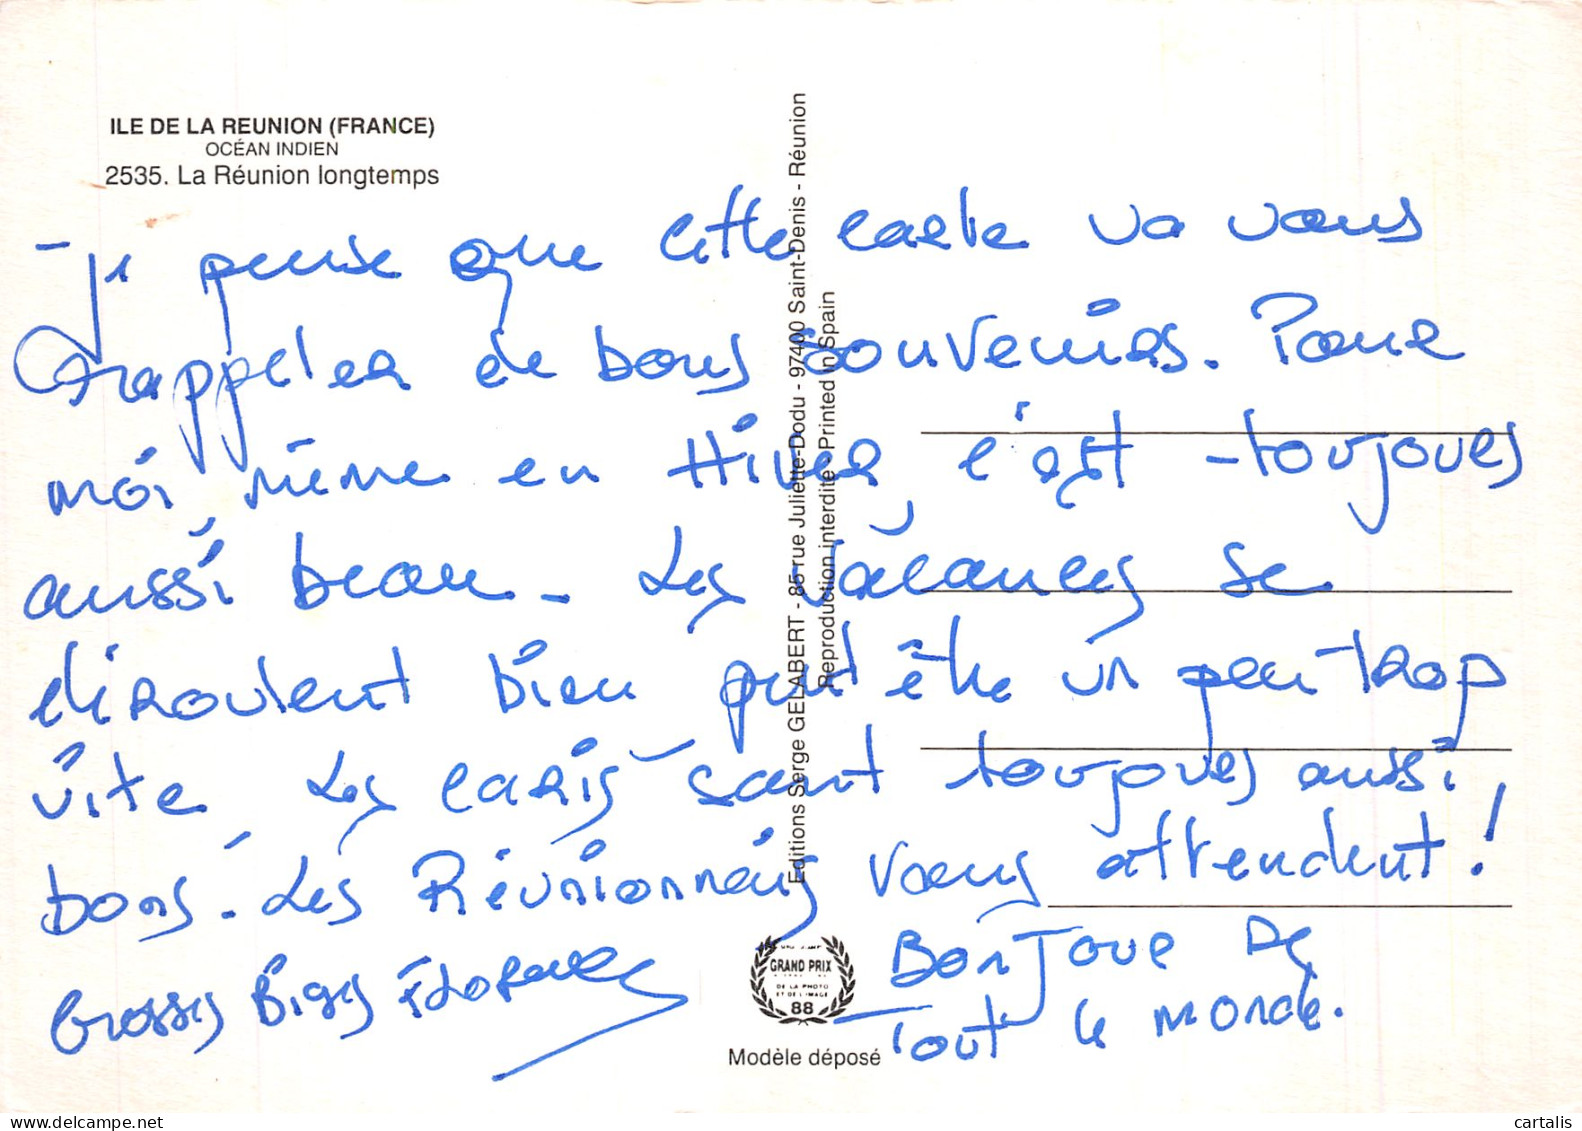 ILE DE LA REUNION (FRANCE)
OCÉAN INDIEN
2535. La Réunion longtemps
Je pense que cette carte va vous
rappeler de bons souvenirs. Pour
moi même en Hiver, c'est toujours
aussi beau - Les vacances se
déroulent bien peut être un peu trop
vite Les caris sont toujours aussi
bons. Les Réunionnais vous attendent !
Grosses Bises
BONJOUR DE
Tout le monde.
Editions Serge GELABERT - 85 rue Juliette-Dodu - 97400 Saint-Denis - Réunion
Reproduction interdite - Printed in Spain
GRAND PRIX
DE LA PHOTO
ET DE L'IMAGE
88
Modèle déposé
delcampe.net
cartalis